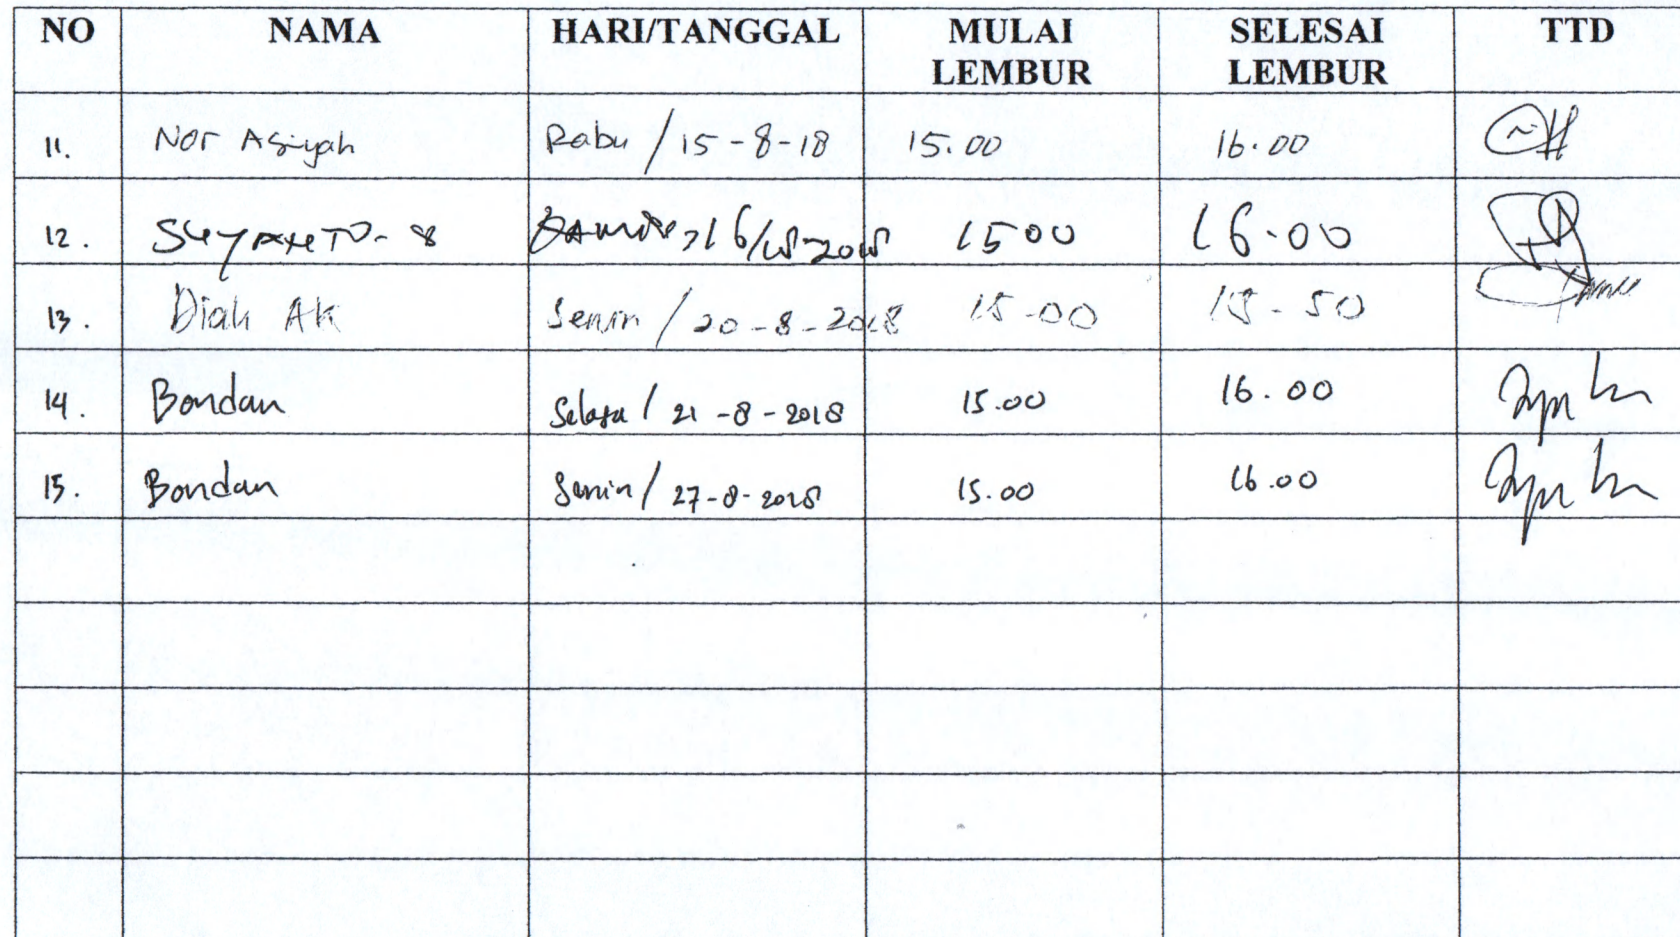 NO NAMA HARI/TANGGAL MULAI LEMBUR SELESAI LEMBUR TTD
11. Nor Asiyah Rabu / 15-8-18 15.00 16.00
12. 1500 16.00
13. Diah AK Senin / 20-8-2018 15.00 15.50
14. Bondan Selasa / 21-8-2018 15.00 16.00
15. Bondan Senin / 27-8-2018 15.00 16.00